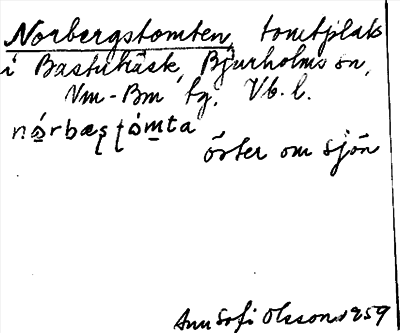 Norbergstomten, tomtplats
i Bastuträsk, Bjurholms sn,
Nm-Bm tg, Vb. l.
öster om sjön
Ann Sofi Olsson 1959